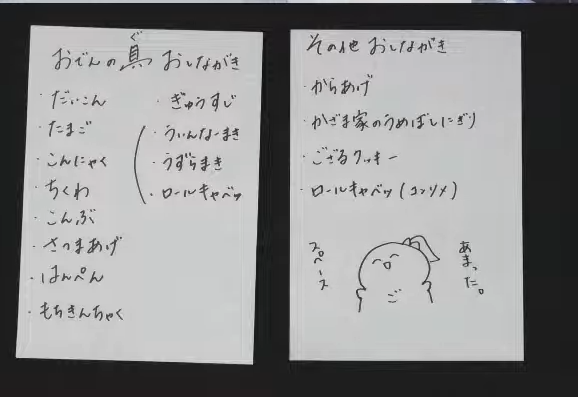 ぐ
おでんの具 おしながき
・だいこん
・たまご
・こんにゃく
・ちくわ
・こんぶ
・さつまあげ
・はんぺん
・もちきんちゃく
・ぎゅうすじ
・ういんなーまき
・うずらまき
・ロールキャベツ
その他 おしながき
・からあげ
・かざま家のうめぼしにぎり
・ござるクッキー
・ロールキャベツ(コンソメ)
あまった。
スペース
ご